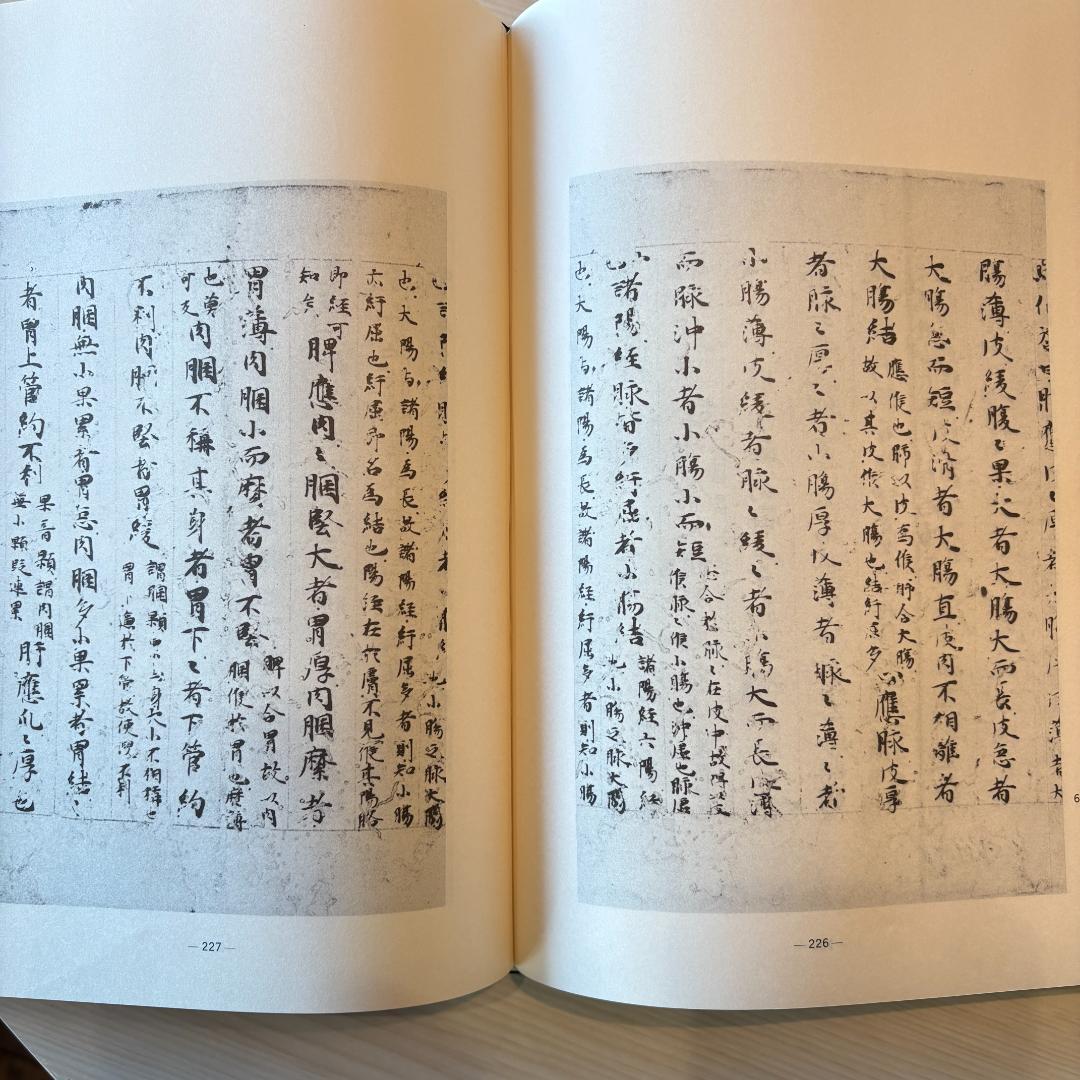 薄者大
腸薄皮緩腹〻果大者大腸大而長皮急者
大腸急而短皮滑者大腸直皮肉不相離者
大腸結
應候也肺以皮爲候肺合大腸
故以其皮候大腸也結紆屈多
心應脉皮厚
者脉〻厚〻者小腸厚皮薄者脉〻薄〻者
小腸薄皮緩者脉〻緩〻者小腸大而長皮薄
而脉沖小者小腸小而短
心合於脉〻在皮中故得以皮
候脉〻候小腸也沖虛也脉虛
小
也
諸陽經脉皆多紆屈者小腸結
諸陽經六陽經
也小腸之脉太陽
也大陽与諸陽爲長故諸陽經紆屈多者則知小腸
也小腸之脉太陽
也大陽与諸陽爲長故諸陽經紆屈多者則知小腸
亦紆屈也紆屈即名爲結也陽經在於膚不見候陽胳
即經可
知矣
脾應肉〻䐃堅大者胃厚肉䐃麼者
胃薄肉䐃小而麼者胃不堅
脾以合胃故以肉
䐃候於胃也麼
也莫
可反
肉䐃不稱其身者胃下〻者下管約
不利肉䐃不堅者胃緩
謂䐃顆小与身大小不相稱也
胃下逼於下管故便溲不利
肉䐃無小果累者胃急肉䐃多小果累者胃結〻
者胃上管約不利
果音顆謂肉䐃
無小顆段連累
肝應爪〻厚也
—227—
—226—